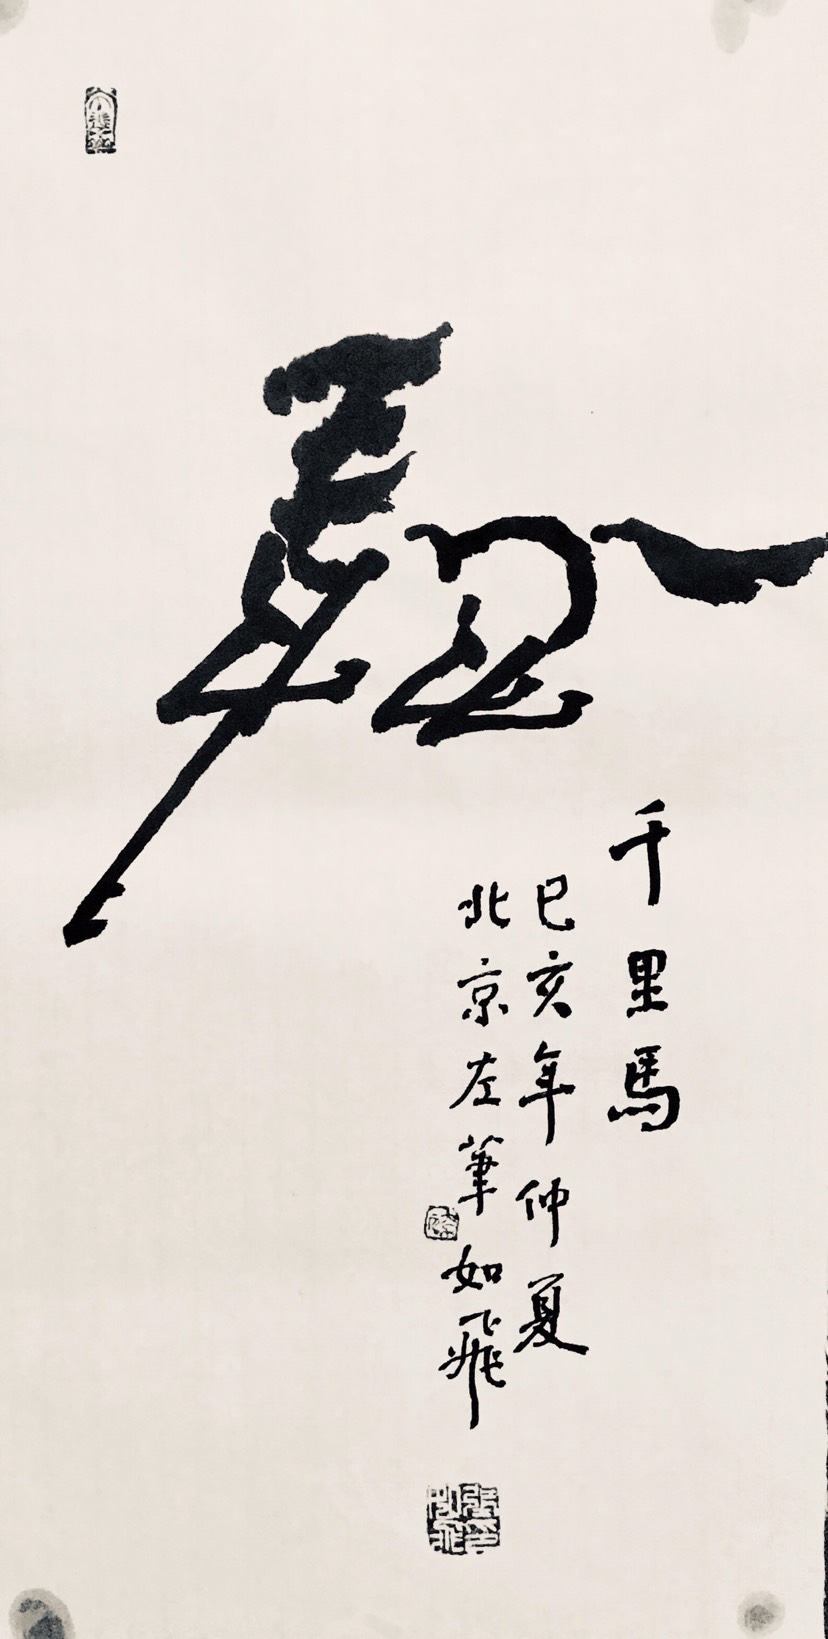 千里馬
己亥年仲夏
北京左筆如飛